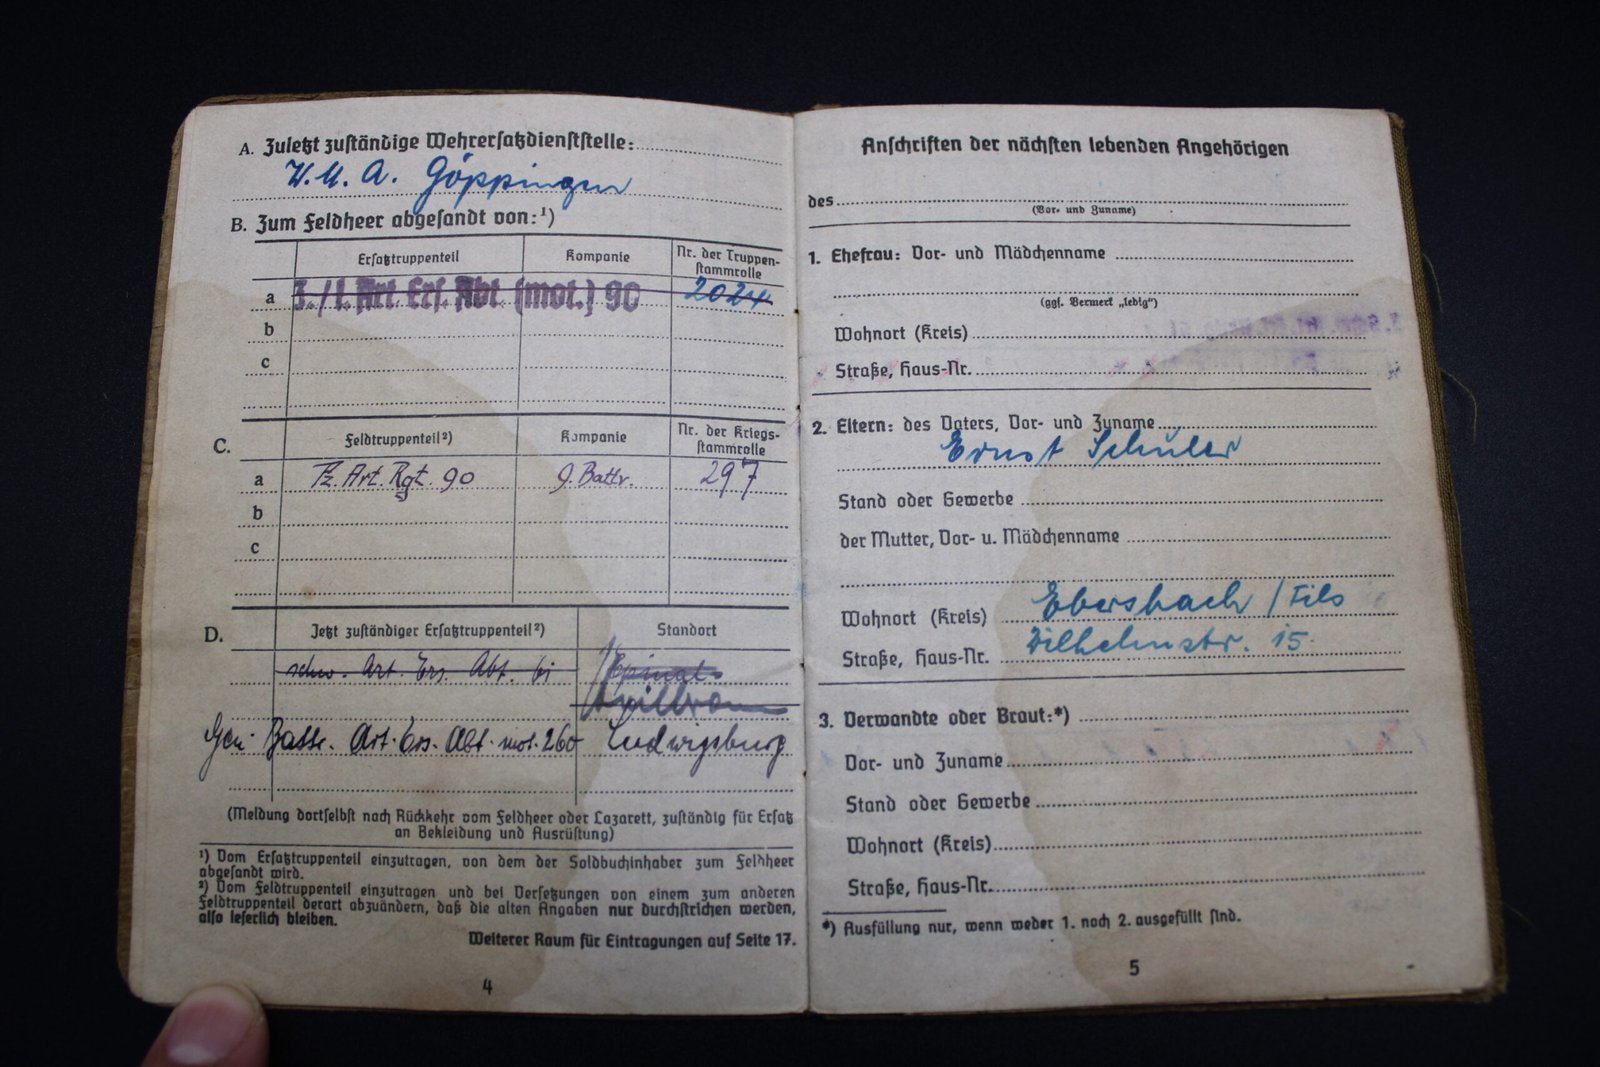 A. Zuletzt zuständige Wehrersatzdienststelle:
W. M. A. Göppingen
B. Zum Feldheer abgesandt von:¹)
Ersatztruppenteil Kompanie Nr. der Truppen-
stammrolle
a 3./I. Art. Ers. Abt (mot.) 90 2024
b
c
C. Feldtruppenteil²) Kompanie Nr. der Kriegs-
stammrolle
a Pz. Art. Rgt. 90 9. Battr. 297
b
c
D. Jetzt zuständiger Ersatztruppenteil²) Standort
schw. Art. Ers. Abt. 61 Epinal
Gen. Battr. Art. Ers. Abt. mot. 260 Ludwigsburg
(Meldung dortselbst nach Rückkehr vom Feldheer oder Lazarett, zuständig für Ersatz
an Bekleidung und Ausrüstung)
¹) Vom Ersatztruppenteil einzutragen, von dem der Soldbuchinhaber zum Feldheer
abgesandt wird.
²) Vom Feldtruppenteil einzutragen und bei Versetzungen von einem zum anderen
Feldtruppenteil derart abzuändern, daß die alten Angaben nur durchstrichen werden,
also leserlich bleiben.
Weiterer Raum für Eintragungen auf Seite 17.
4
Anschriften der nächsten lebenden Angehörigen
des
(Vor- und Zuname)
1. Ehefrau: Vor- und Mädchenname
(ggf. Vermerk „ledig“)
Wohnort (Kreis)
Straße, Haus-Nr.
2. Eltern: des Vaters, Vor- und Zuname
Ernst Schuler
Stand oder Gewerbe
der Mutter, Vor- u. Mädchenname
Wohnort (Kreis) Ebersbach / Fils
Straße, Haus-Nr. Wilhelmstr. 15.
3. Verwandte oder Braut:*)
Vor- und Zuname
Stand oder Gewerbe
Wohnort (Kreis)
Straße, Haus-Nr.
*) Ausfüllung nur, wenn weder 1. noch 2. ausgefüllt sind.
5